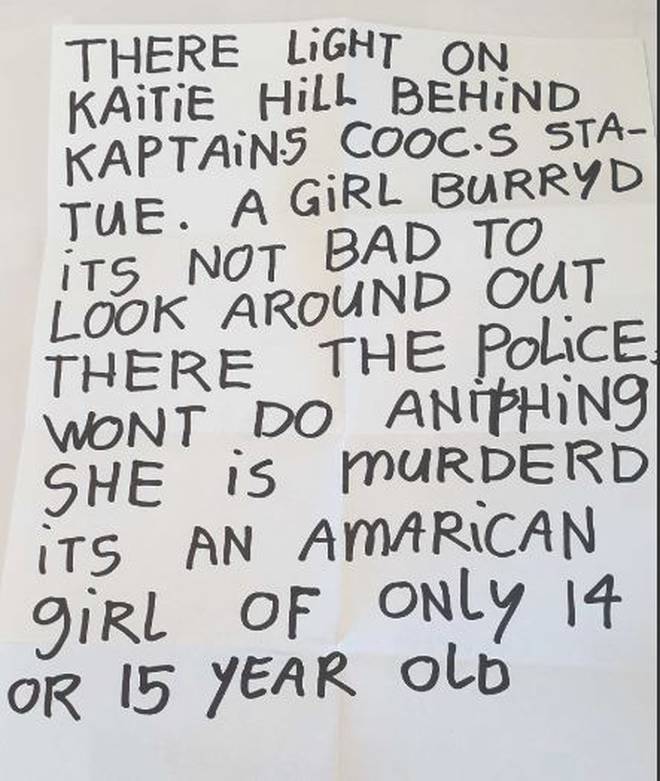 THERE LiGHT ON
KAiTiE HiLL BEHiND
KAPTAiN.S COOC.S STA-
TUE. A GiRL BURRYD
iTS NOT BAD TO
LOOK AROUND OUT
THERE THE POLiCE.
WONT DO ANitHiNg
SHE iS mURDERD
iTS AN AmARiCAN
giRL OF ONLy 14
OR 15 YEAR OLD